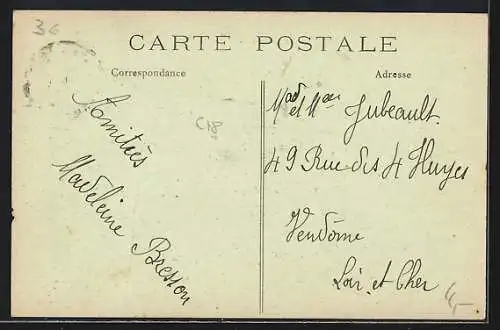 36
CARTE POSTALE
Correspondance
Adresse
Amitiés
Madeleine Bresson
et Jubeault
49 Rue des 4 Huyes
Vendôme
Loir et Cher